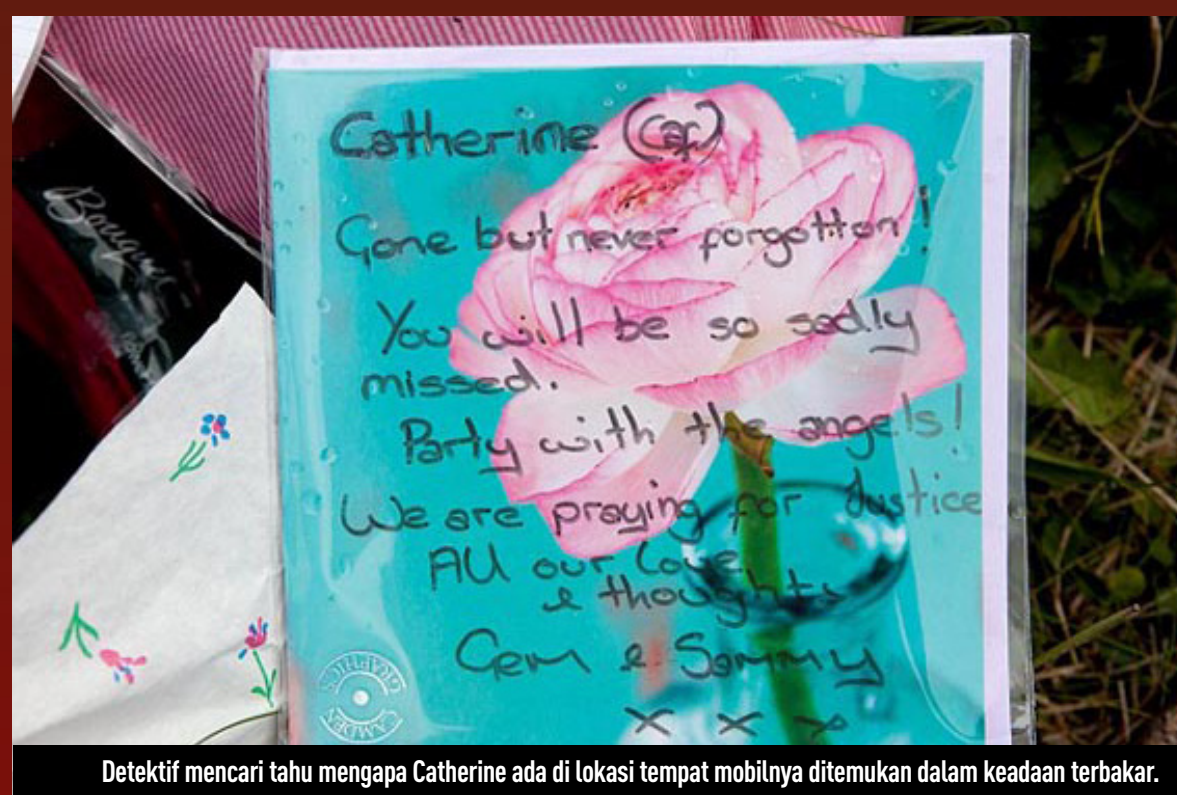 Catherine (Caf)
Gone but never forgotton!
You will be so sadly
missed.
Party with the angels!
We are praying for Justice
All our love
& thoughts
Gem & Sammy
x x x
CAMDEN GRAPHICS
Detektif mencari tahu mengapa Catherine ada di lokasi tempat mobilnya ditemukan dalam keadaan terbakar.